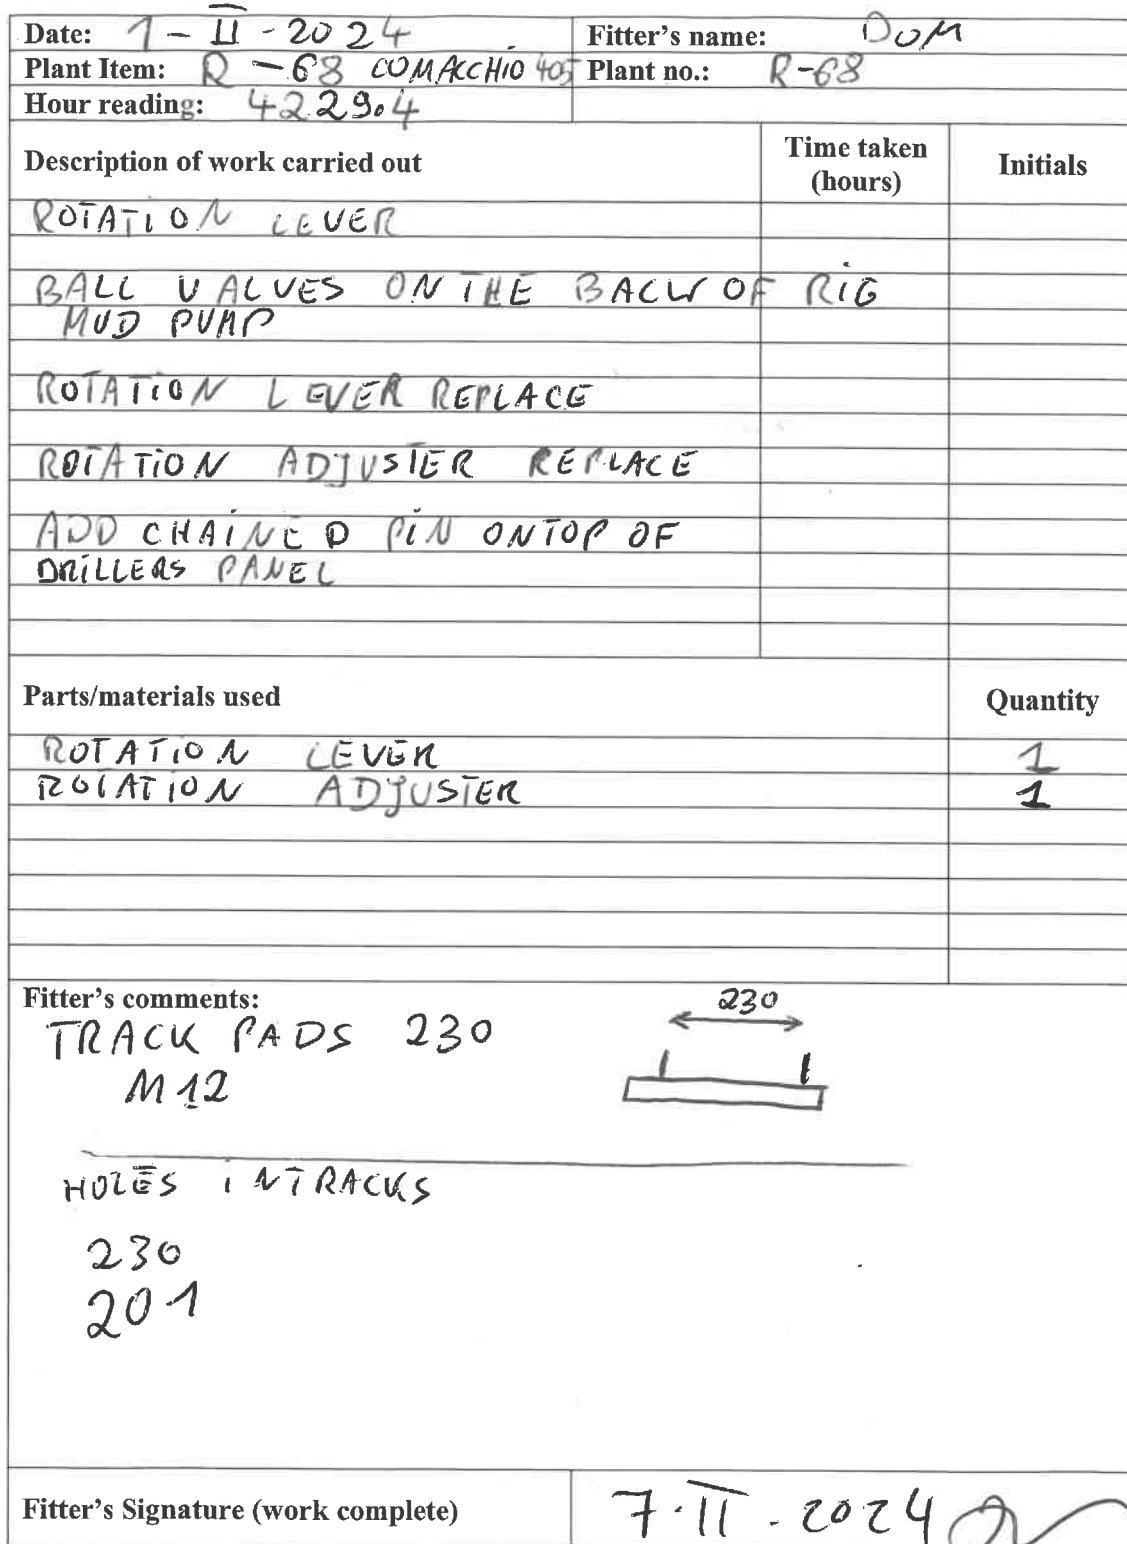 Date: 1-II-2024 Fitter's name: DOM
Plant Item: R-68 COMACCHIO 405 Plant no.: R-68
Hour reading: 4229.4
Description of work carried out Time taken (hours) Initials
ROTATION LEVER
BALL VALVES ON THE BACK OF RIG
MUD PUMP
ROTATION LEVER REPLACE
ROTATION ADJUSTER REPLACE
ADD CHAINED PIN ONTOP OF
DRILLERS PANEL
Parts/materials used Quantity
ROTATION LEVER 1
ROTATION ADJUSTER 1
Fitter's comments:
230
TRACK PADS 230
M12
HOLES IN TRACKS
230
201
Fitter's Signature (work complete) 7.II.2024